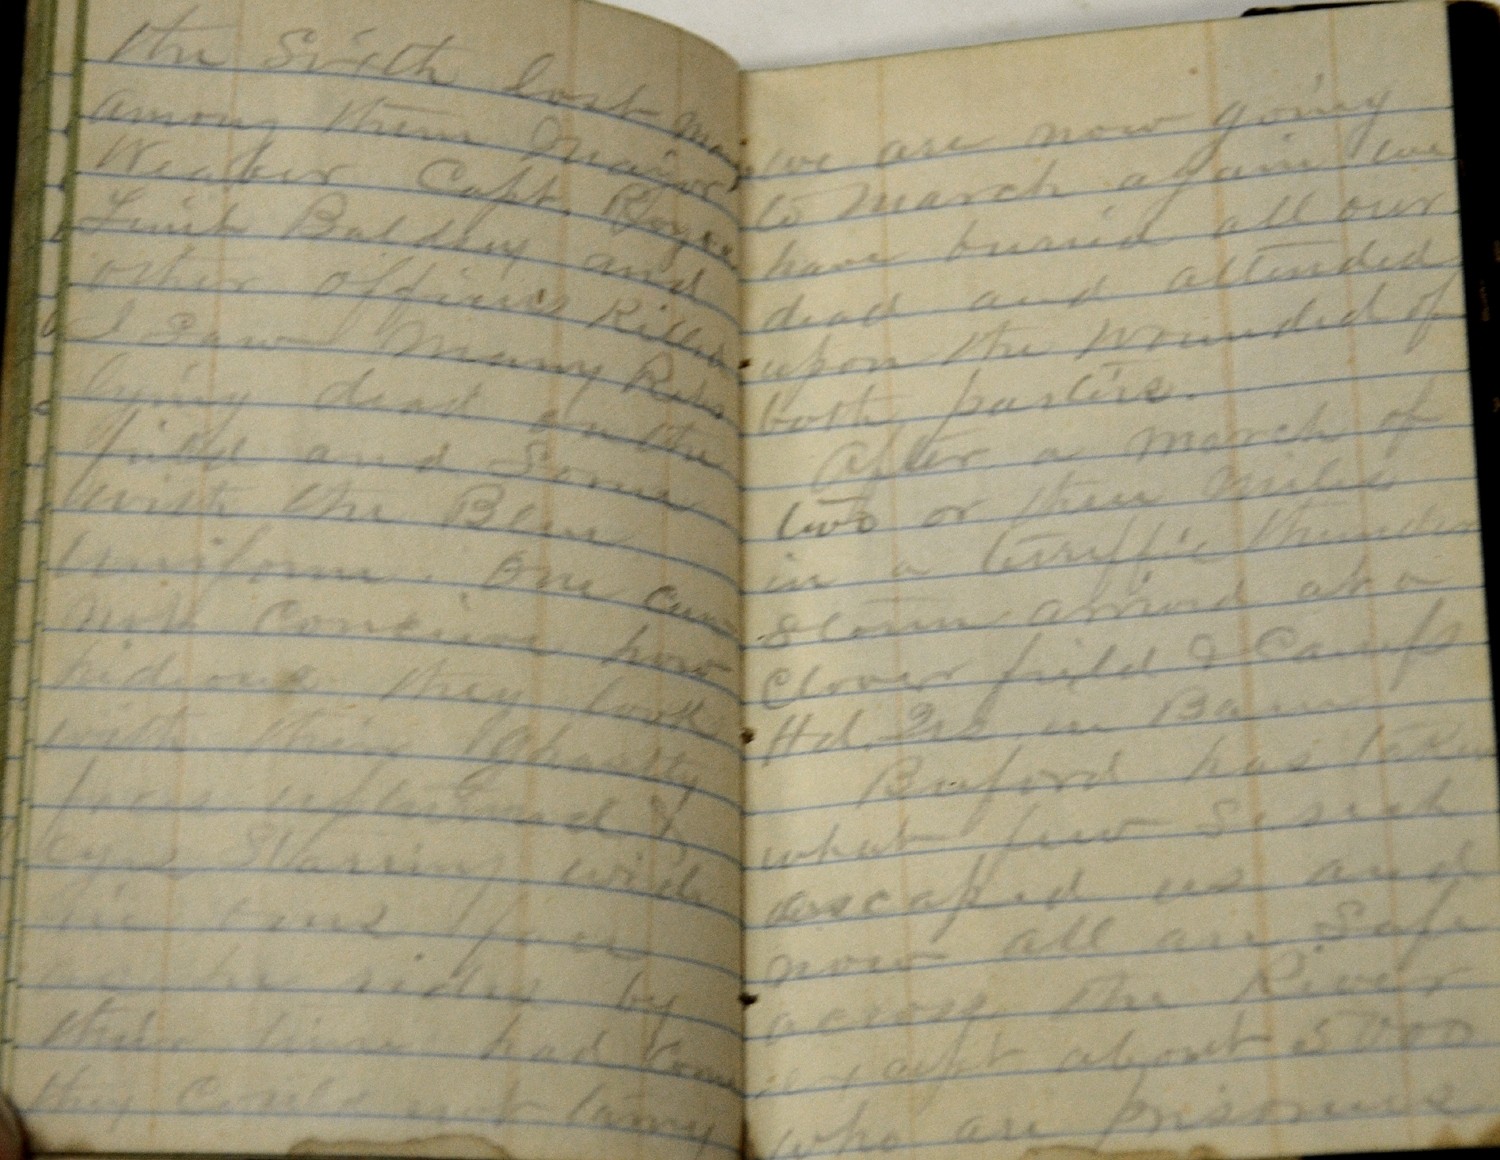 the Sixth lost many
among them Major
Weaber Capt. Royce
Leiut Balding and
other officers Killed
I Saw Many Rebs
lying dead on the
field and Some
with the Blue
Uniform. One can
not conceive how
hideous they look
with their ghastly
faces upturned &
eyes Starring wide
as he rides by
their time had come
they could not tarry
we are now going
to march again we
have buried all our
dead and attended
upon the wounded of
both parties.
After a march of
two or three miles
in a terriffic thunder
storm arrived at a
Clover field & Camp
Hd. Qrs. in Barn
Buford has taken
what few Sesech
escaped us and
now all are Safe
across the River
except about 5000
who are prisoners